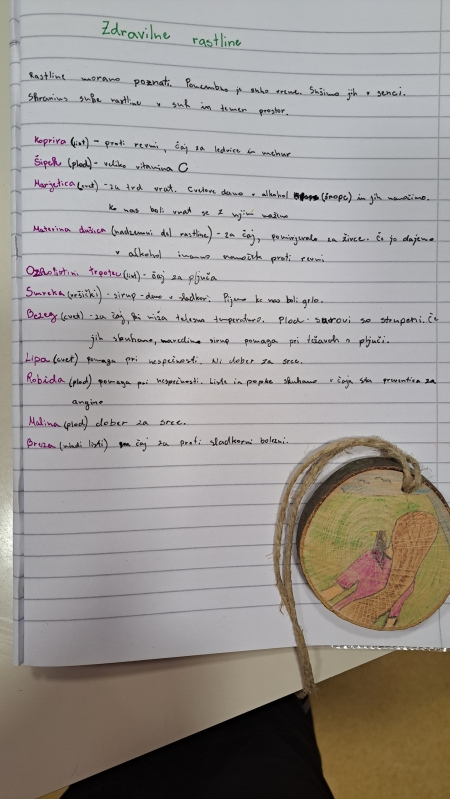 Zdravilne rastline
Rastline moramo poznati. Pomembno je suho vreme. Sušimo jih v senci.
Shranimo suhe rastline v suh in temen prostor.
Kopriva (list) - proti revmi, čaj za ledvice in mehur
Šipek (plod) - veliko vitamina C
Marjetica (cvet) - za trd vrat. Cvetove damo v alkohol (šnopc) in jih namočimo.
Ko nas boli vrat se z njim mažemo
Materina dušica (nadzemni del rastline) - za čaj, pomirjevalo za živce. Če jo dajemo
v alkohol imamo namočite proti revmi
Ozkolistni trpotec (list) - čaj za pljuča
Smreka (vršički) - sirup - damo v sladkor. Pijemo ko nas boli grlo.
Bezeg (cvet) - za čaj, ki niža telesno temperaturo. Plod - surovi so strupeni. Če
jih skuhamo, naredimo sirup pomaga pri težavah s pljuči.
Lipa (cvet) pomaga pri nespečnosti. Ni dober za srce.
Robida (plod) pomaga pri nespečnosti. Liste in popke skuhamo v čaju sta preventiva za
angino
Malina (plod) dober za srce.
Breza (mladi listi) čaj za proti sladkorni bolezni.